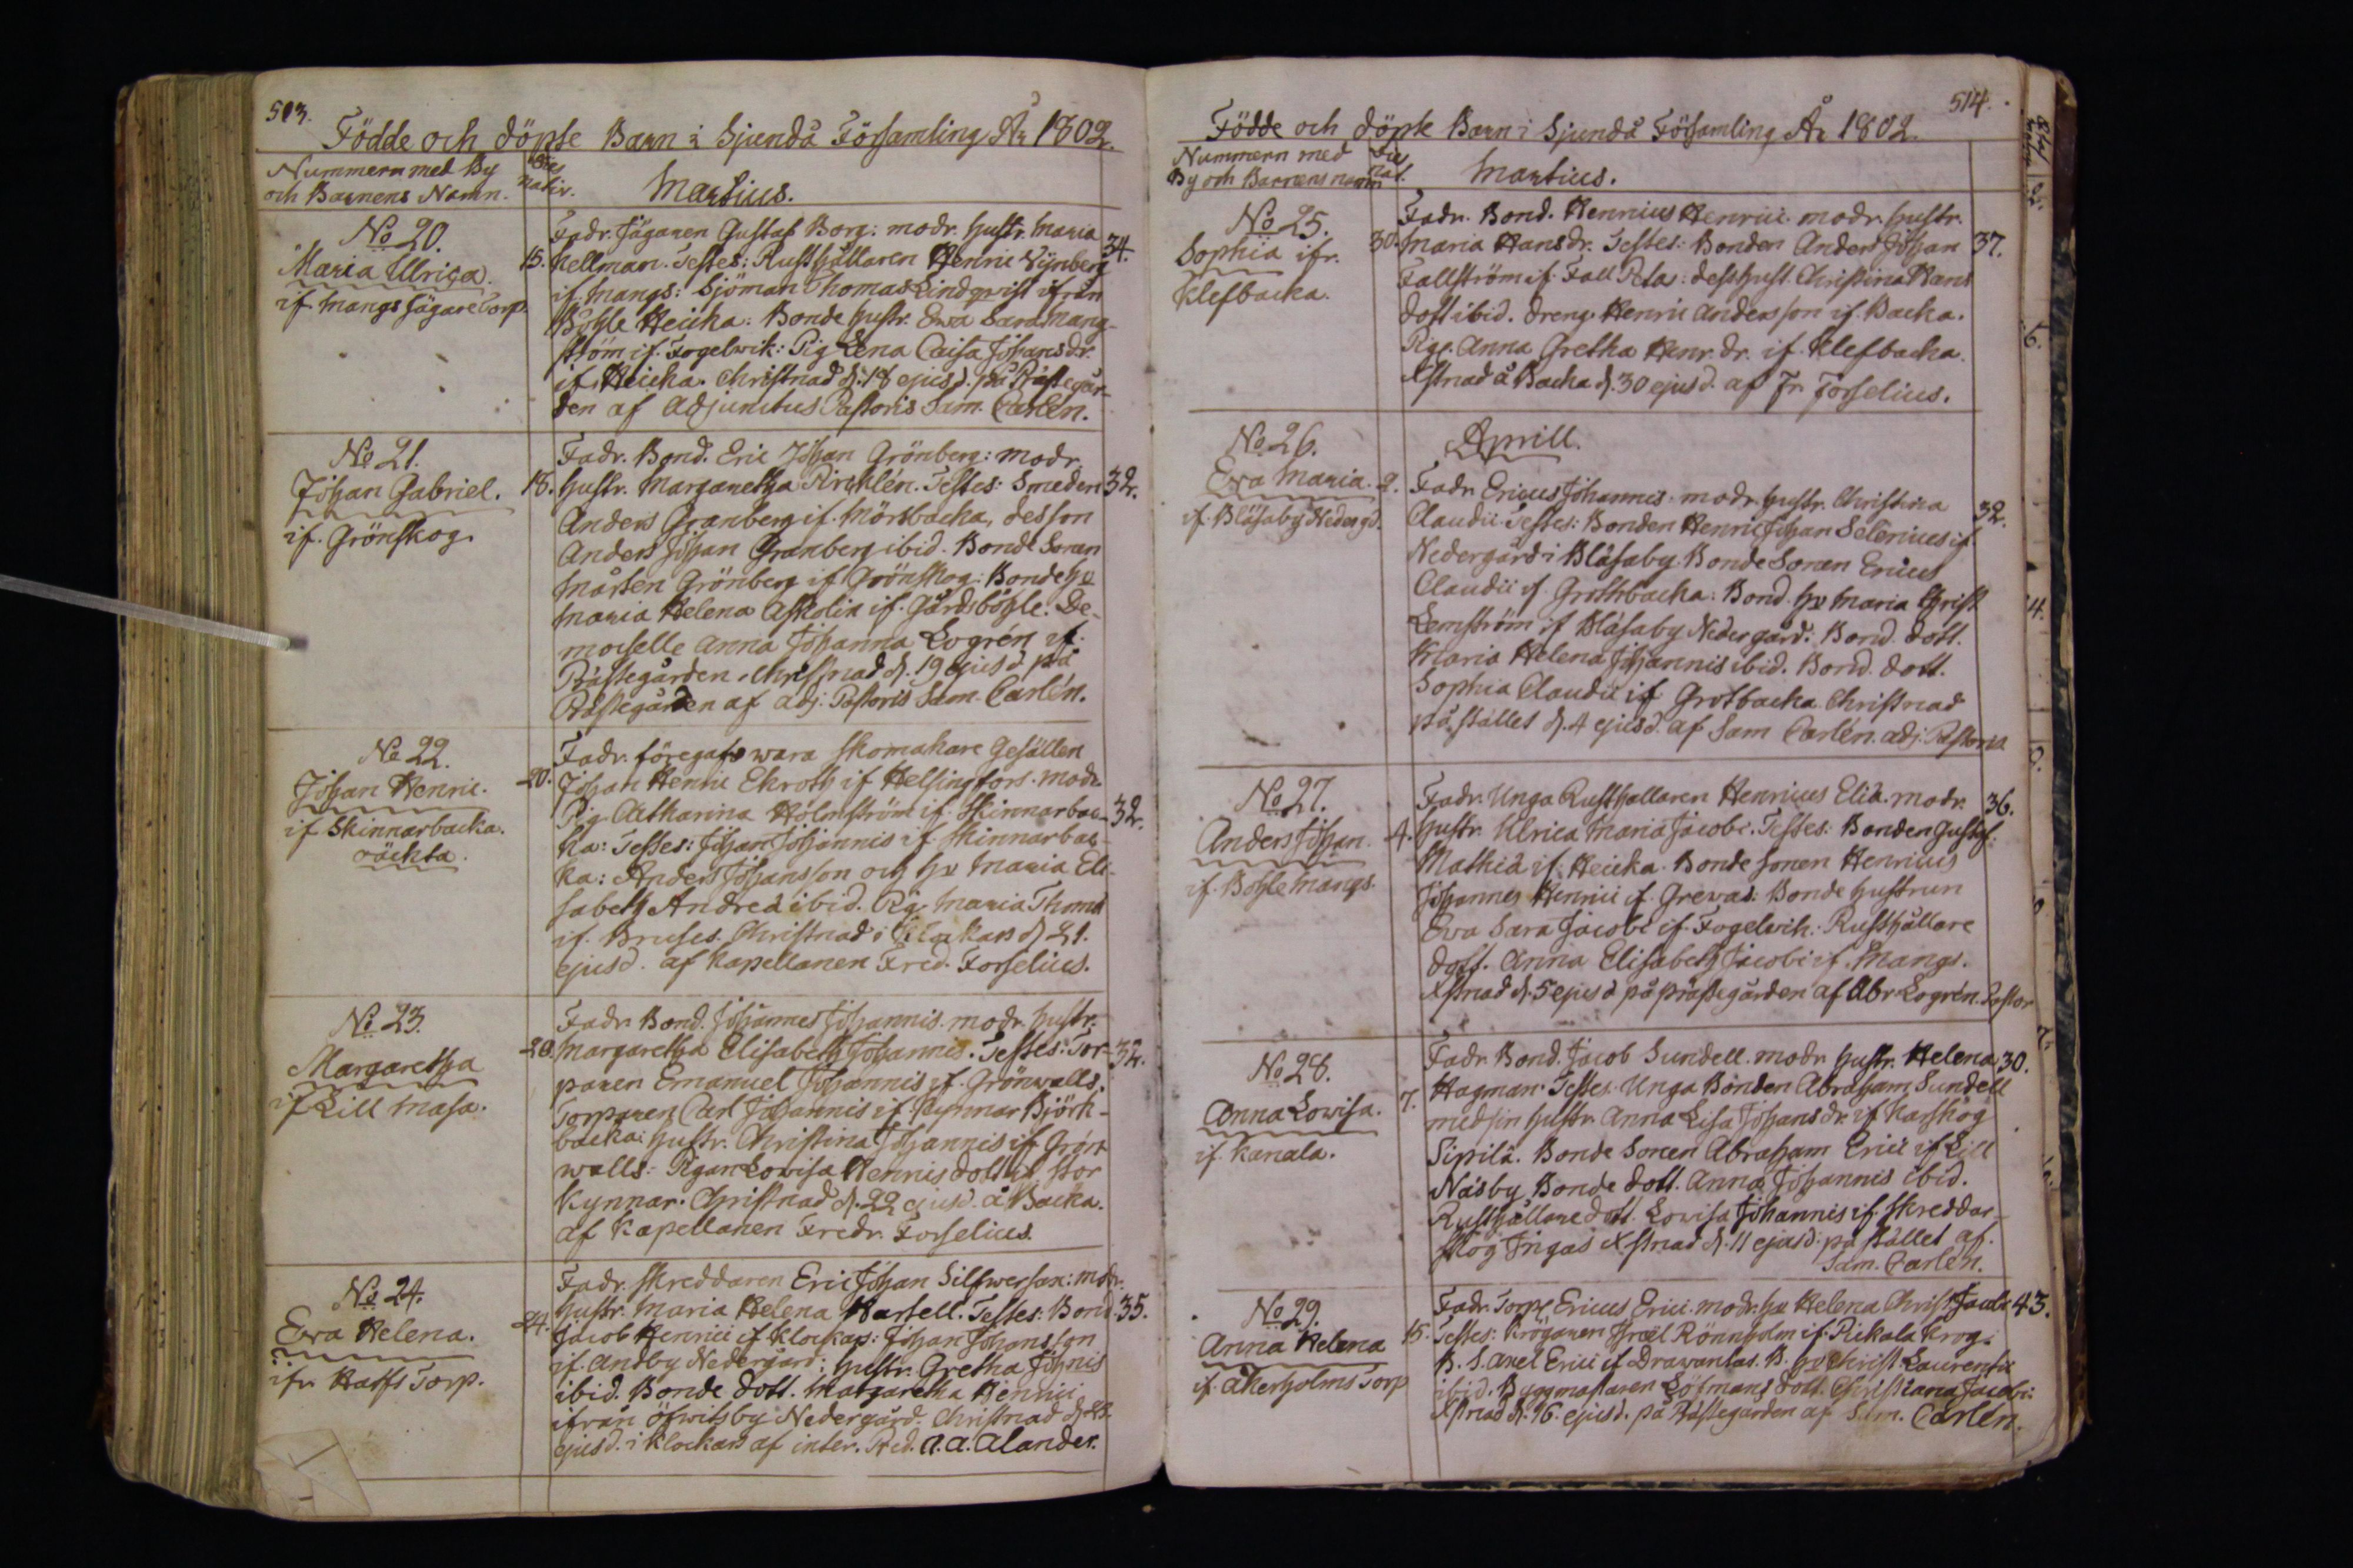 513.
Födde och döpte Barn i Sjundå Församling År 1802.
Nummern med By
och Barnens Namn.
Dies
Nativ.
Martius.
No 20.
Maria Ulrica.
if. Mangs Jägare Torp.
15.
Fadr. Jägaren Gustaf Borg: modr. hustr. Maria
Kellman. Testes: Rusthållaren Henric Wynberg
if. Mangs: Sjöman Thomas Lindqvist ifrån
Böhle Heicka: Bonde hustr. Ewa Sara Mang-
ström if. Fogelwik: Pig. Lena Caisa Johansdr.
if. Heicka. Christnad d. 18 ejusd. på Prästegår-
den af Adjunctus Pastoris Sam. Carlén.
34.
No 21.
Johan Gabriel.
if. Grönskog.
18.
Fadr. Bond. Eric Johan Grönberg: modr.
hustr. Margaretha Richlén. Testes: Smeden
Anders Granberg if. Mörsbacka, dess son
Anders Johan Granberg ibid. Bonde Sonen
Mårten Grönberg if. Grönskog: Bonde hu
Maria Helena Askolin if. Gårdsböhle. De-
moiselle Anna Johanna Logrén if.
Prästegården. Christnad d. 19 ejusd på
Prästegården af adj. Pastoris Sam. Carlén.
32.
No 22.
Johan Henric.
if Skinnarbacka.
oäckta.
20.
Fadr. föregafs wara Skomakare Gesällen
Johan Henric Ekroth if Helsingfors. modr.
Pig. Catharina Holmström if. Skinnarbac-
ka: Testes: Johan Johannis if. Skinnarbac-
ka: Anders Johansson och hu Maria Eli-
sabeth Andreä ibid. Pig. Maria Thomæ
if. Bruses. Christnad i Klockars d 21.
ejusd. af Kapellanen Fred. Forselius.
32.
No 23.
Margaretha
if Lill Masa.
20.
Fadr. Bond. Johannes Johannis. modr. hustr.
Margaretha Elisabeth Johannis. Testes: Tor-
paren Emanuel Johannis if. Grönwalls.
Torparen Carl Johannis if. Kynnar Björk-
backa: hustr. Christina Johannis if Grön
walls: Pigan Lowisa Henricsdott if Stor
Kynnar. Christnad d. 22 ejusd. å Backa.
af Kapellanen Fredr. Forselius.
32.
No 24.
Ewa Helena.
ifr. Karfs Torp.
24.
Fadr. Skreddaren Eric Johan Silfwersax: modr.
hustr. Maria Helena Karsell. Testes: Bond
Jacob Henrici if Klockars: Johan Johansson
if. Andby Nedergård: hustr. Gretha Johnis
ibid. Bonde dott. Margaretha Henrici
ifrån Öfwitsby Nedergård. Christnad d 28.
ejusd. i Klockars af inter. Pred. A. A. Alander.
35.
514.
Födde och döpte Barn i Sjundå Församling År 1802.
Nummern med
By och Barnens namn
Dies
nat.
Martius.
No 25.
Sophia ifr.
Klefbacka.
30.
Fadr. Bond. Henricus Henrici. modr. hustr.
Maria Hansdr. Testes: Bonden Anders Johan
Fallström if. Fall Peta: dess hust. Christina Hans
dott ibid. Dreng. Henric Andersson if. Backa.
Pig. Anna Gretha Henr. dr. if. Klefbacka.
Xstnad å Backa d. 30 ejusd. af Fr. Forselius.
37.
Aprill.
No 26.
Ewa Maria.
if. Blåsaby Nedergd.
2.
Fadr Ericus Johannis. modr. hustr. Christina
Claudii Testes: Bonden Henric Johan Selenius if.
Nedergård i Blåsaby. Bonde Sonen Ericus
Claudii if. Grotbacka: Bond. hu Maria Christ
Lemström if Blåsaby Nedergård: Bond. dott.
Maria Helena Johannis ibid. Bond. dott.
Sophia Claudii if Grotbacka. Christnad
på stället d. 4 ejusd. af Sam Carlén. adj. Pastoris
32.
No 27.
Anders Johan.
if. Böhle Mangs.
4.
Fadr. Unga Rusthållaren Henricus Eliä. modr.
hustr. Ulrica Maria Jacobi. Testes: Bonden Gustaf.
Mathiä if. Heicka. Bonde Sonen Henricus
Johannes Henrici if. Grewas: Bonde hustrun
Ewa Sara Jacobi if. Fogelwik: Rusthållare
dott. Anna Elisabeth Jacobi if. Mangs.
Xstnad d. 5 ejusd på prästegården af Abr. Logrén. Pastor
36.
No 28.
Anna Lowisa.
if. Kanala.
7.
Fadr. Bond. Jacob Sundell. modr hustr. Helena
Hagman. Testes. Unga Bonden Abraham Sundell
med sin hustr. Anna Lisa Johansdr. if Karskog
Sipilä. Bonde Sonen Abraham Erici if Lill
Näsby Bonde dott. Anna Johannis ibid.
Rusthållare dott. Lowisa Johannis if. Skreddar-
skog Ingas Xstnad d. 11 ejusd: på stället af.
Sam. Carlén.
30.
No 29.
Anna Helena
if. Åkerholms Torp
15.
Fadr. Torp. Ericus Erici. modr. hu Helena Christ. Jacobi
Testes: Krögaren Israel Rönnholm if. Pickala Krog.
B. S. Axel Erici if Drawantas. B. hu Christ. Laurentii
ibid. Byggmästaren Löfmans dott. Christiana Jacobi:
Xstnad d. 16. ejusd. på Prästegården af Sam. Carlén.
43.